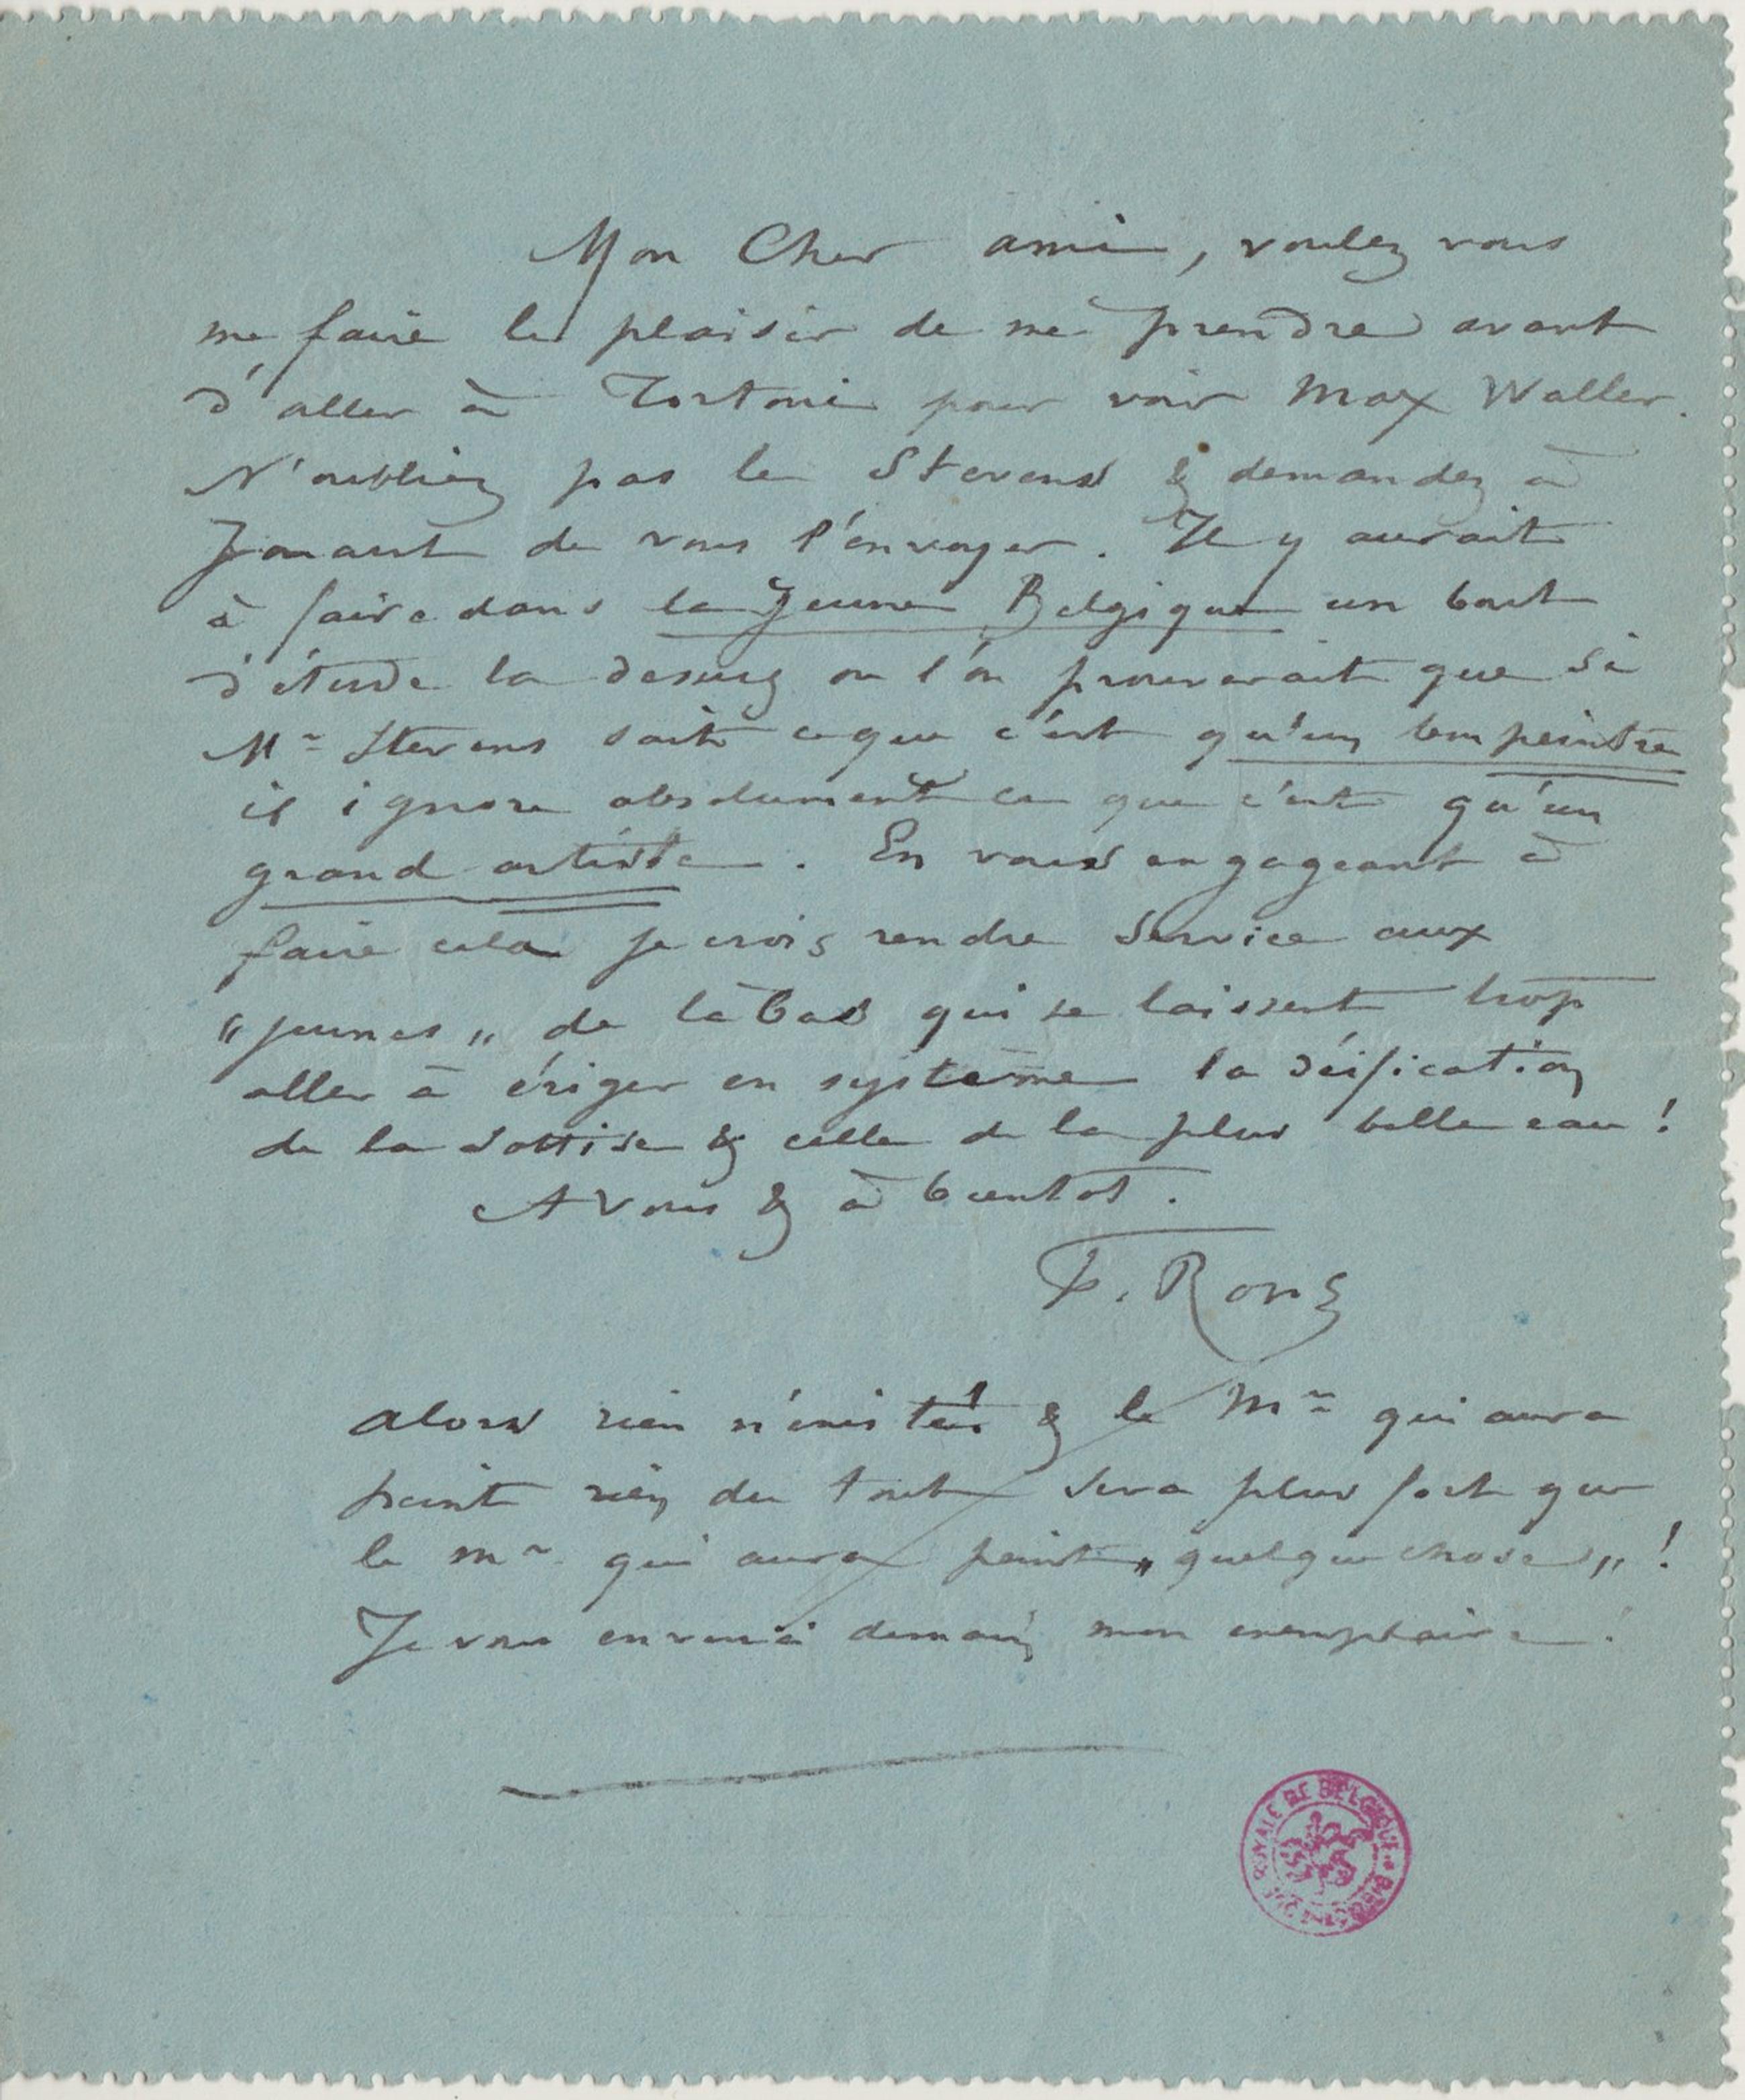 Mon Cher ami, voulez vous
me faire le plaisir de me prendre avant
d'aller à Tortoni pour voir Max Waller.
N'oubliez pas le Stevens & demandez à
Jouaust de vous l'envoyer. Il y aurait
à faire dans la Jeune Belgique un bout
d'étude la dessus ou l'on prouverait que si
Mr Stevens sait ce que c'est qu'un bon peintre
il ignore absolument ce que c'est qu'un
grand artiste. En vous engageant à
faire cela je crois rendre service aux
"jeunes" de là bas qui se laissent trop
aller à ériger en système la déification
de la sottise & celle de la plus belle eau !
A vous & à bientot.
F. Rops
alors rien n'existe! & le Mr qui aura
peint rien du tout sera plus fort que
le mr qui aura peint "quelque chose" !
Je vous envoie demain mon exemplaire.
ROYALE DE BELGIQUE